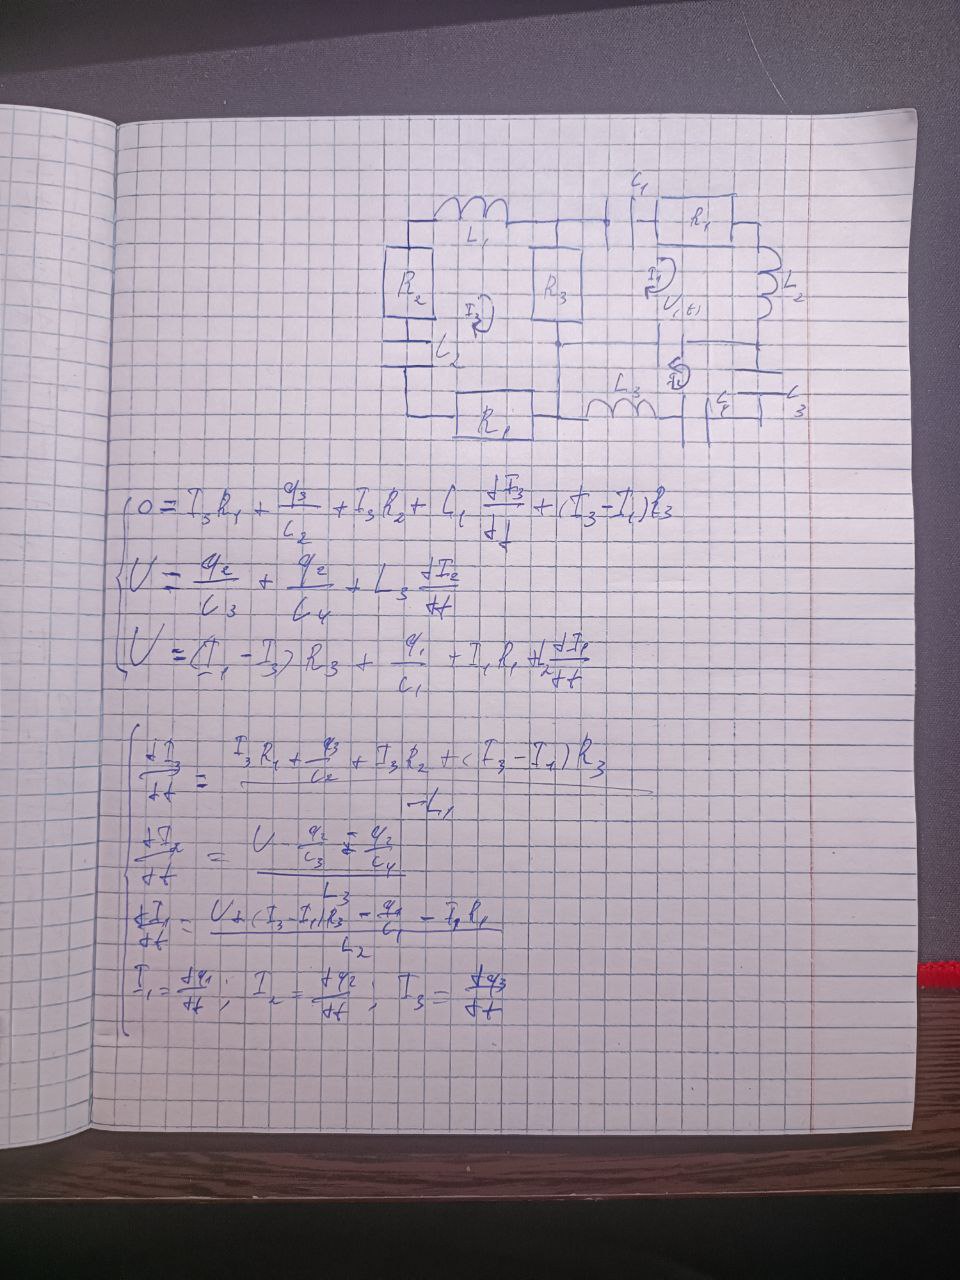 C₁
R₁
L₁
R₂ R₃ I₁ L₂
I₃ U(t)
C₂
L₃ C₃
R₁
0 = I₃R₁ + q₃/C₂ + I₃R₂ + L₁ dI₃/dt + (I₃ - I₁)R₃
U = q₂/C₃ + q₂/C₄ + L₃ dI₂/dt
U = (I₁ - I₃)R₃ + q₁/C₁ + I₁R₁ + L₂ dI₁/dt
dI₃/dt = (I₃R₁ + q₃/C₂ + I₃R₂ + (I₃ - I₁)R₃)/(-L₁)
dI₂/dt = (U - q₂/C₃ - q₂/C₄)/L₃
dI₁/dt = (U + (I₃ - I₁)R₃ - q₁/C₁ - I₁R₁)/L₂
I₁ = dq₁/dt; I₂ = dq₂/dt; I₃ = dq₃/dt